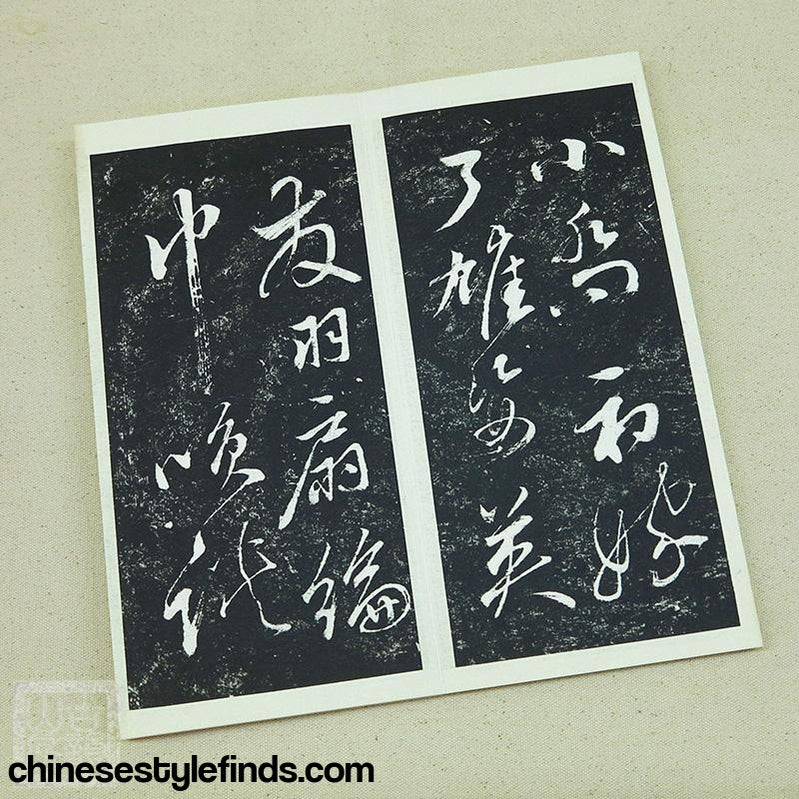 小喬初嫁
了雄姿英
發羽扇綸
巾咲談
chinesestylefinds.com